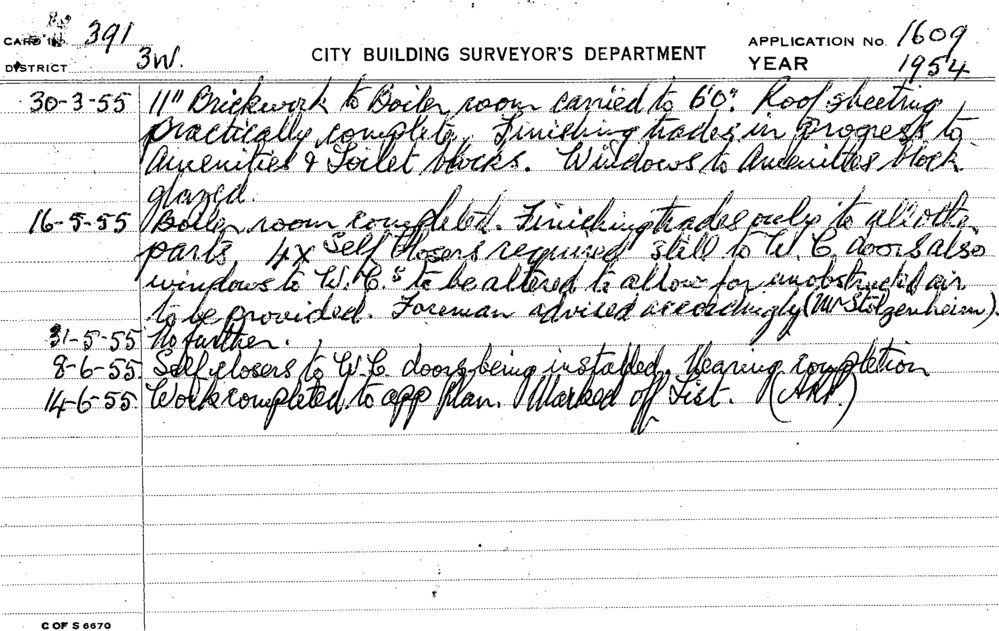 CARD No. 391
CITY BUILDING SURVEYOR'S DEPARTMENT
APPLICATION No. 1609
DISTRICT 3W.
YEAR 1954
30-3-55 11" Brickwork to Boiler room carried to 6'0". Roof sheeting
practically complete. Finishing trades in progress to
Amenities & Toilet blocks. Windows to Amenities block
glazed.
16-5-55 Boiler room completed. Finishing trades only to all other
parts. 4x Self closers required still to W.C. doors also
windows to W.C.s to be altered to allow for unobstructed air
to be provided. Foreman advised accordingly (Mr Stolzenheim).
31-5-55 No further.
8-6-55 Self closers to W.C. doors being installed. Nearing completion
14-6-55 Work completed to app plan. Marked off List.
C OF S 6670